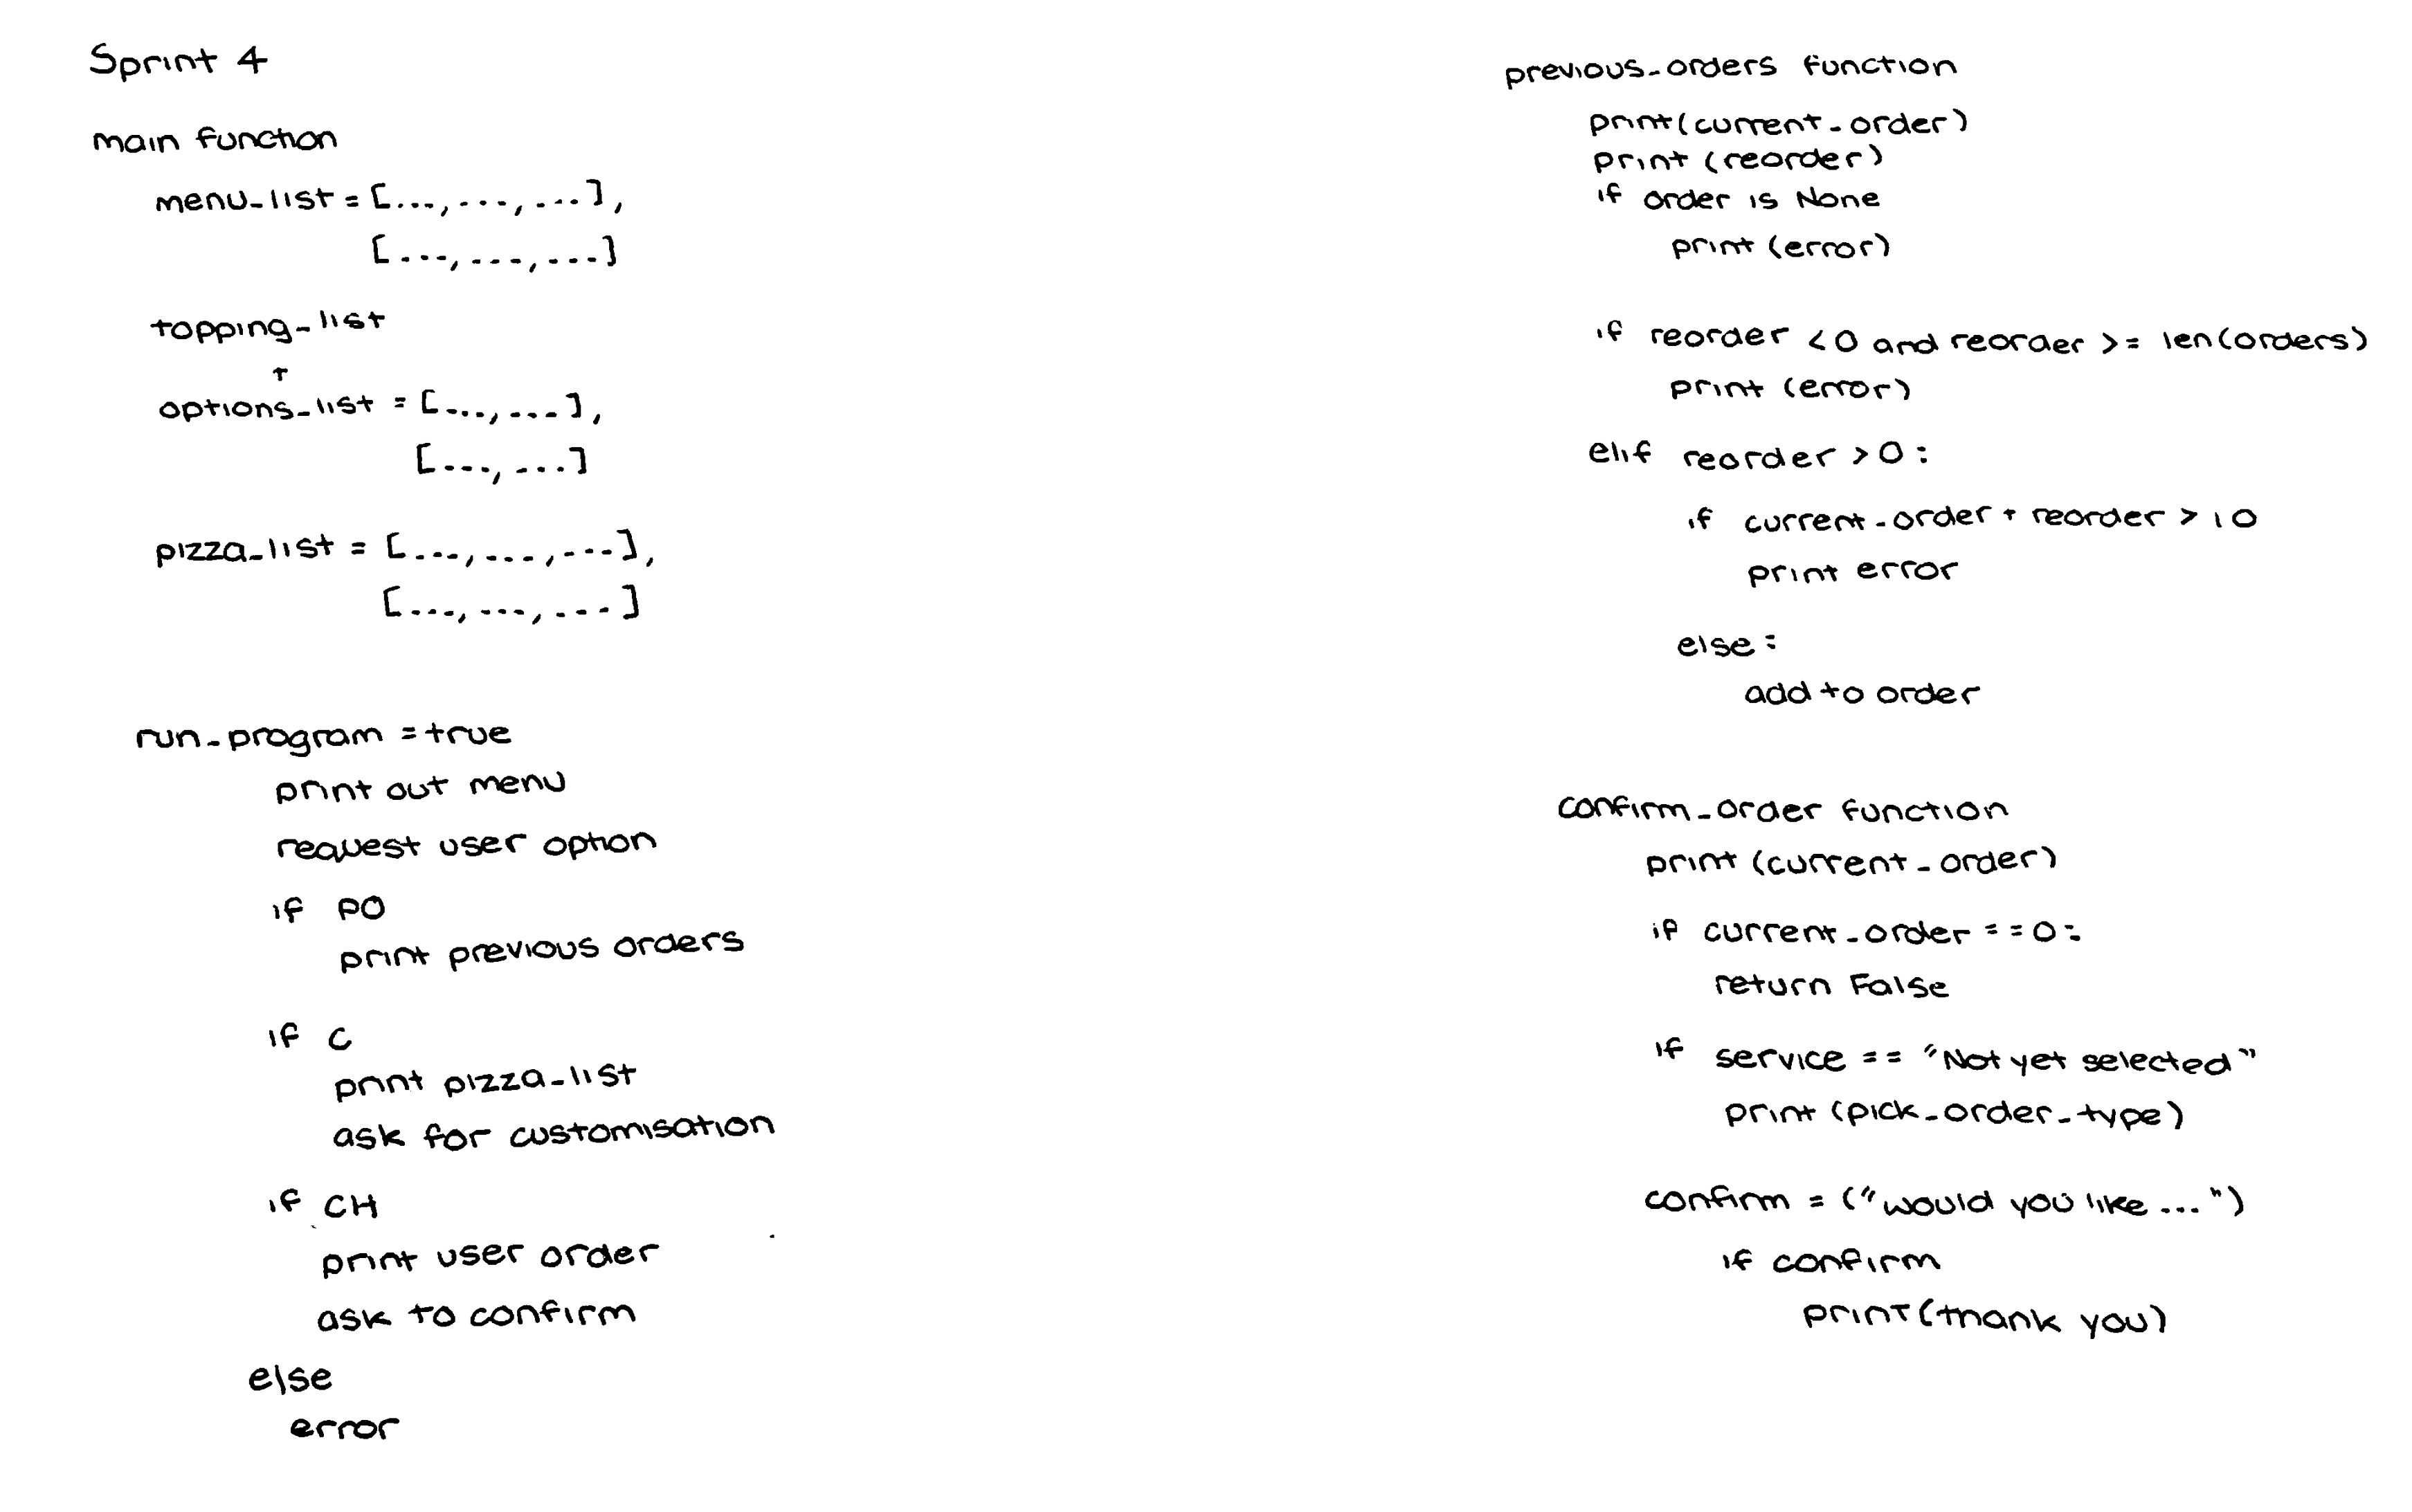 Sprint 4
main function
menu_list = [...., ...., ....],
[...., ...., ....]
topping_list
+
options_list = [...., ....],
[...., ....]
pizza_list = [...., ...., ....],
[...., ...., ....]
run_program = true
print out menu
request user option
if PO
print previous orders
if C
print pizza_list
ask for customisation
if CH
print user order
ask to confirm
else
error
previous_orders function
print(current_order)
print (reorder)
if order is None
print (error)
if reorder <0 and reorder >= len(orders)
print (error)
elif reorder >0:
if current_order + reorder > 10
print error
else:
add to order
confirm_order function
print (current_order)
if current_order ==0:
return False
if service == "Not yet selected"
print (pick_order_type)
confirm = ("would you like ...")
if confirm
print(thank you)